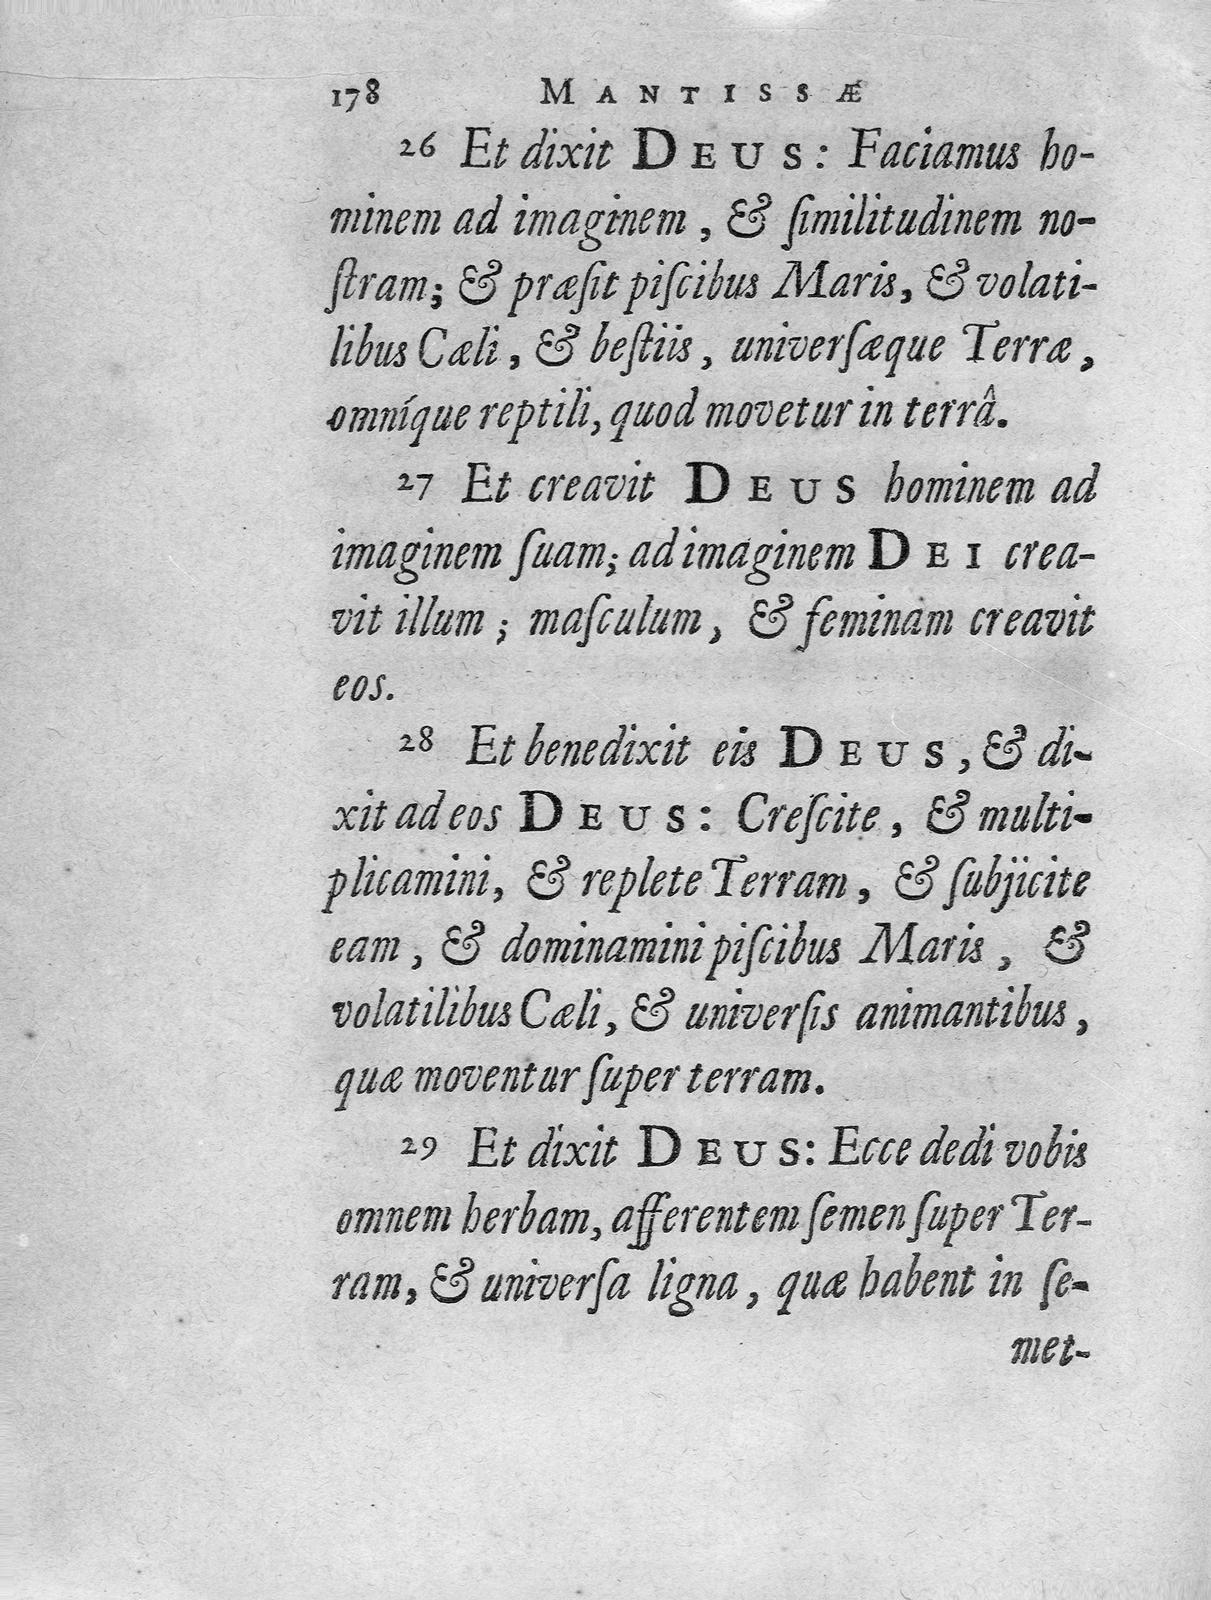 178 MANTISSÆ
26 Et dixit DEUS: Faciamus ho-
minem ad imaginem, & ſimilitudinem no-
ſtram; & præſit piſcibus Maris, & volati-
libus Cæli, & beſtiis, univerſæque Terræ,
omníque reptili, quod movetur in terrâ.
27 Et creavit DEUS hominem ad
imaginem ſuam; ad imaginem DEI crea-
vit illum; maſculum, & feminam creavit
eos.
28 Et benedixit eis DEUS, & di-
xit ad eos DEUS: Creſcite, & multi-
plicamini, & replete Terram, & ſubjicite
eam, & dominamini piſcibus Maris, &
volatilibus Cæli, & univerſis animantibus,
quæ moventur ſuper terram.
29 Et dixit DEUS: Ecce dedi vobis
omnem herbam, afferentem ſemen ſuper Ter-
ram, & univerſa ligna, quæ habent in ſe-
met-